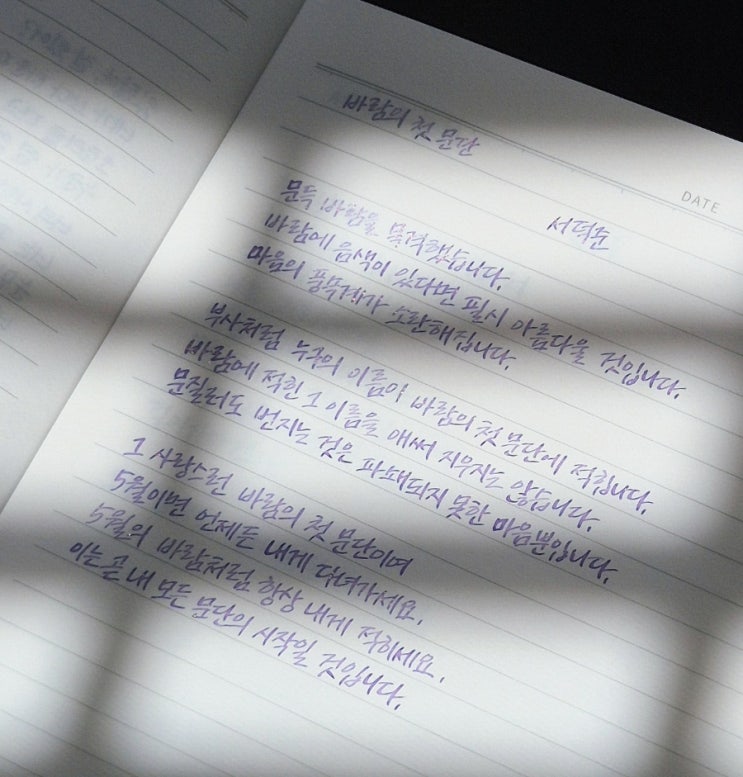 바람의 첫 문단
DATE
서덕준
문득 바람을 목격했습니다.
바람에 음색이 있다면 필시 아름다울 것입니다.
마음의 풍뮤계가 소란해집니다.
부사처럼 누군의 이름이 바람의 첫 문단에 적힙니다.
바람에 적힌 그 이름을 애써 지우지는 않습니다.
문질러도 번지는 것은 파쇄되지 못한 마음뿐입니다.
그 사랑스런 바람의 첫 문단이여
5월이면 언제든 내게 다녀가세요.
5월의 바람처럼 항상 내게 적히세요.
이는 곧 내 모든 문단의 시작일 것입니다.